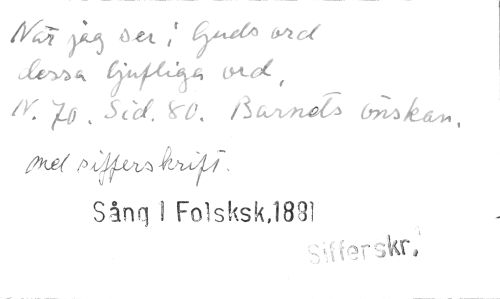 När jag ser i Guds ord
dessa ljufliga ord,
N. 70. Sid. 80. Barnets önskan.
med sifferskrift.
Sång I Folsksk,1881
Sifferskr.